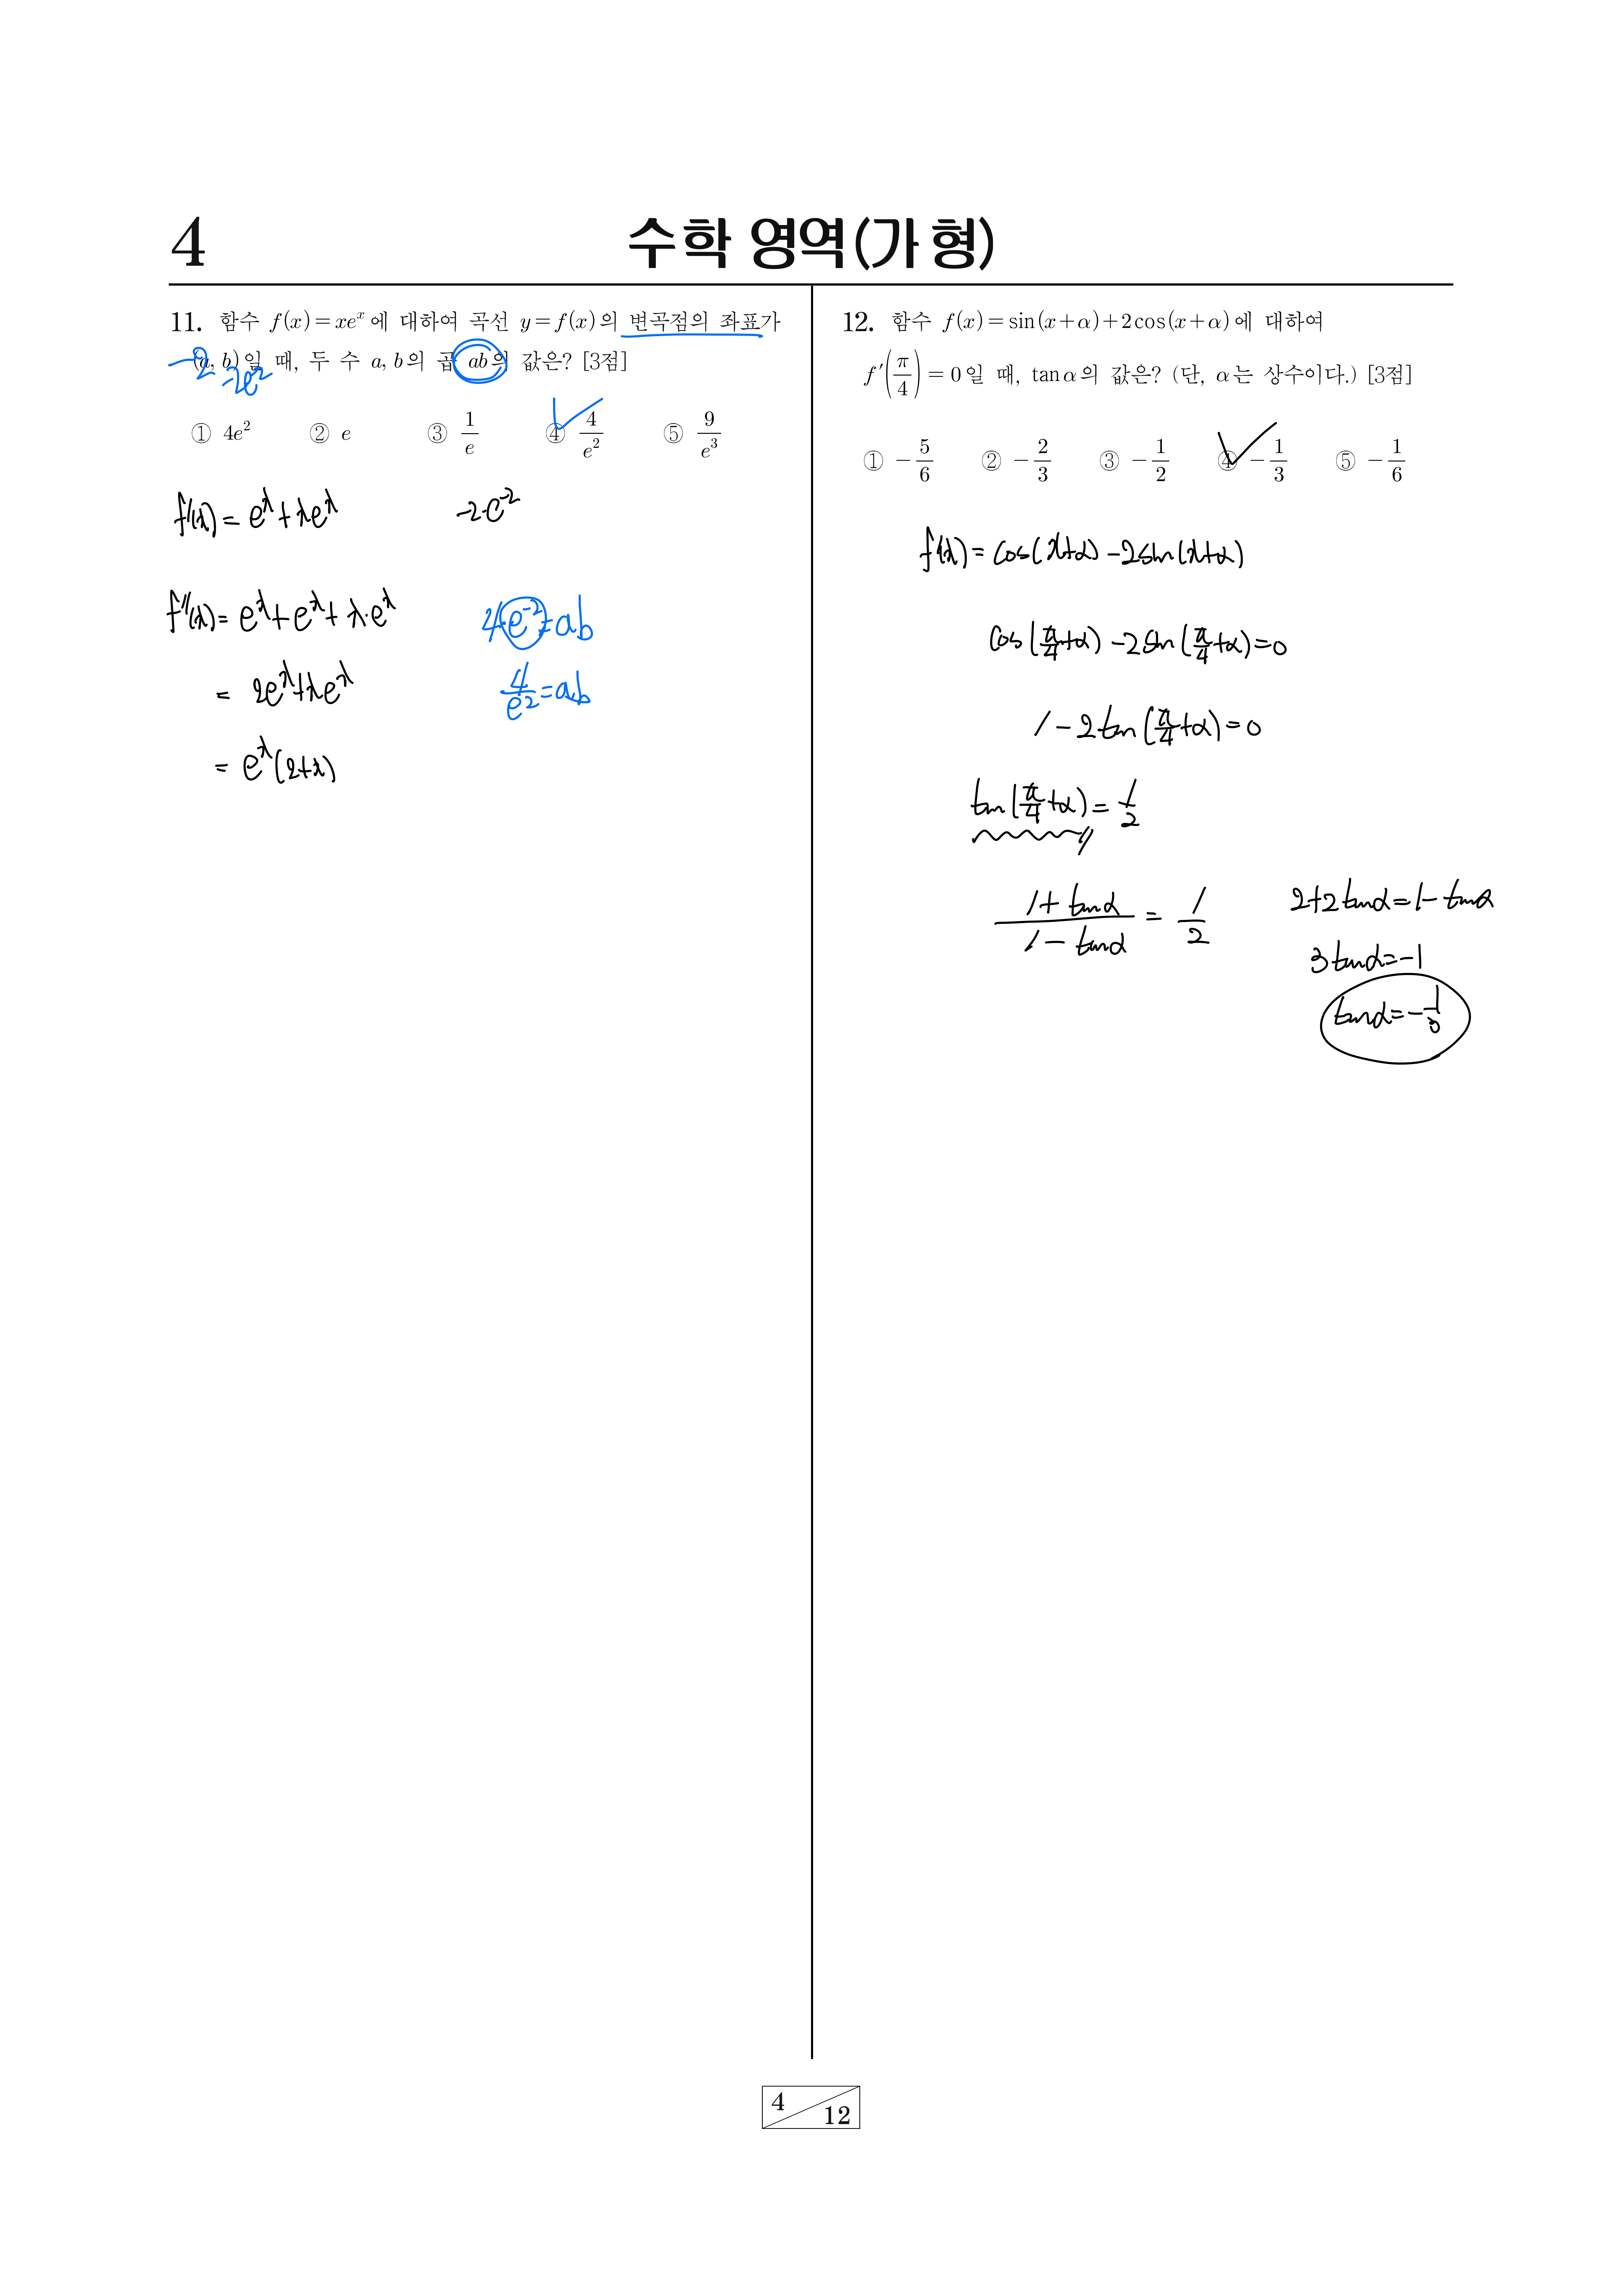 4
수학 영역(가 형)
11. 함수 f(x)=xe^x에 대하여 곡선 y=f(x)의 변곡점의 좌표가
(a, b)일 때, 두 수 a, b의 곱 ab의 값은? [3점]
-2
-2e^-2
① 4e^2 ② e ③ 1/e ④ 4/e^2 ⑤ 9/e^3
f'(x)=e^x+xe^x
-2·e^-2
f''(x)=e^x+e^x+x·e^x
= 2e^x+xe^x
= e^x(2+x)
4·e^-2=ab
4/e^2=ab
12. 함수 f(x)=sin(x+α)+2cos(x+α)에 대하여
f'(π/4)=0일 때, tanα의 값은? (단, α는 상수이다.) [3점]
① -5/6 ② -2/3 ③ -1/2 ④ -1/3 ⑤ -1/6
f'(x)=cos(x+α)-2sin(x+α)
cos(π/4+α)-2sin(π/4+α)=0
1-2tan(π/4+α)=0
tan(π/4+α)=1/2
(1+tanα)/(1-tanα)=1/2
2+2tanα=1-tanα
3tanα=-1
tanα=-1/3
4/12